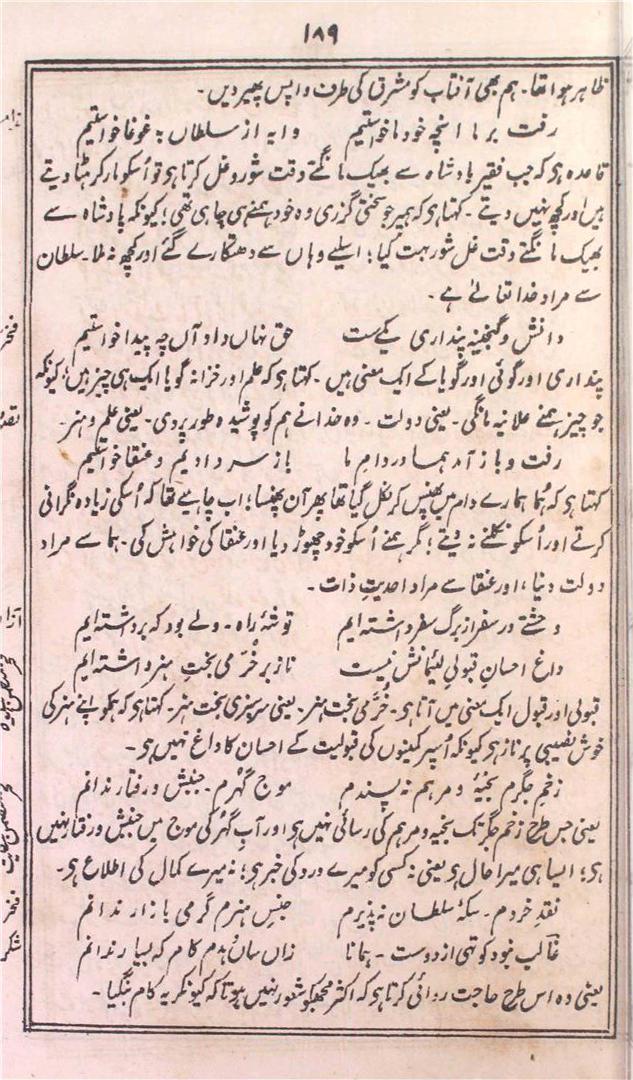 ۱۸۹
ظاہر ہوا تھا۔ ہم بھی آفتاب کو مشرق کی طرف واپس پھیر دیں۔
رفت بر ما انچہ خود ما خواستیم وایہ از سلطاں بہ غوغا خواستیم
قاعدہ ہو کہ جب فقیر بادشاہ سے بھیک مانگتے وقت شور و غل کرتا ہو تو اُسکو مار کر ہٹا دیتے
ہیں اور کچھ نہیں دیتے۔ کہتا ہو کہ ہمپر جو سختی گزری وہ خود ہمنے ہی چاہی تھی؛ کیونکہ بادشاہ سے
بھیک مانگتے وقت غل شور بہت کیا؛ اسلیے وہاں سے دھتکارے گئے اور کچھ نہ ملا۔ سلطان
سے مراد خدا تعالےٰ ہے۔
دانش و گنجینہ پنداری یکے ست حق نہاں داد آں چہ پیدا خواستیم
پنداری اور گوئی اور گویا کے ایک معنی ہیں۔ کہتا ہو کہ علم اور خزانہ گویا ایک ہی چیز ہیں؛ کیونکہ
جو چیز ہمنے علانیہ مانگی۔ یعنی دولت۔ وہ خدا نے ہم کو پوشیدہ طور پر دی۔ یعنی علم و ہنر۔
رفت و باز آمد ہما در دامِ ما باز سر دادیم و عنقا خواستیم
کہتا ہو کہ ہُما ہمارے دام میں پھنس کر نکل گیا تھا پھر آن پھنسا؛ اب چاہیے تھا کہ اُسکی زیادہ نگرانی
کرتے اور اُسکو نکلنے نہ دیتے؛ مگر ہمنے اُسکو خود چھوڑ دیا اور عنقا کی خواہش کی۔ ہما سے مراد
دولت دنیا، اور عنقا سے مراد احدیتِ ذات۔
وحشتے در سفر از برگ سفر داشتہ ایم توشۂ راہ۔ دلے بود کہ برداشتہ ایم
داغ احسانِ قبولی لئیمانش نیست ناز بر خُرّمیِ بختِ ہنر داشتہ ایم
قبولی اور قبول ایک معنی میں آتا ہو۔ خُرَّمی بخت ہنر۔ یعنی سرسبزی بخت ہنر۔ کہتا ہو کہ ہمکو اپنے ہنر کی
خوش نصیبی پر ناز ہو کیونکہ اُسپر کمینوں کی قبولیت کے احسان کا داغ نہیں ہو۔
زخمِ جگرم بخیۂ و مرہم نہ پسندم موج گہرم۔ جنبش و رفتار ندانم
یعنی جس طرح زخم جگر تک بخیہ و مرہم کی رسائی نہیں ہو اور آبِ گہر کی موج میں جنبش و رفتار نہیں
ہو؛ ایسا ہی میرا حال ہو یعنی نہ کسی کو میرے درد کی خبر ہو؛ نہ میرے کمال کی اطلاع ہو۔
نقدِ خردم۔ سکۂ سلطان نہ پذیرم جنسِ ہنرم گرمی بازار ندانم
غالب نبود کوتہی از دوست۔ ہمانا زاں ساں دہدم کام کہ بسیار ندانم
یعنی وہ اس طرح حاجت روائی کرتا ہو کہ اکثر مجھکو شعور نہیں ہوتا کہ کیونکر یہ کام بنگیا۔